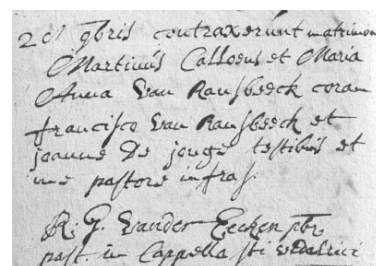 2 d 9bris contraxerunt matrimon
Martinus Calloens et Maria
Anna Van Ransbeeck coram
francisco Van Ransbeeck et
joanne De jonge testibus et
me pastore infras.
R. G. Vander Eecken pbr
past. in Cappella sti